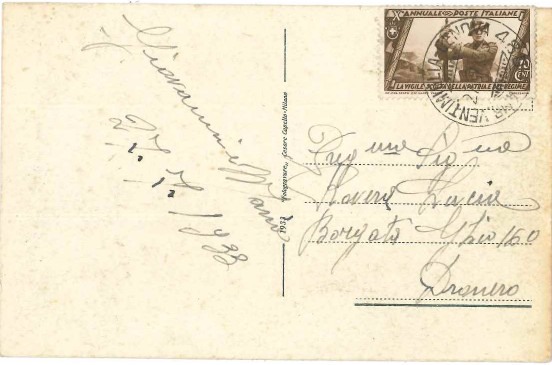 Giovanni e Maria
27. 12. 1933
1933 Fotogravure, Cesare Capello-Milano
X ANNUALE POSTE ITALIANE
10 CENT
LA VIGILE SCOLTA DELLA PATRIA E DEL REGIME
GENOVA VENTIMIGLIA
Preg ma Sig na
Ravera Lucia
Borgata Ghio/60
Dronero